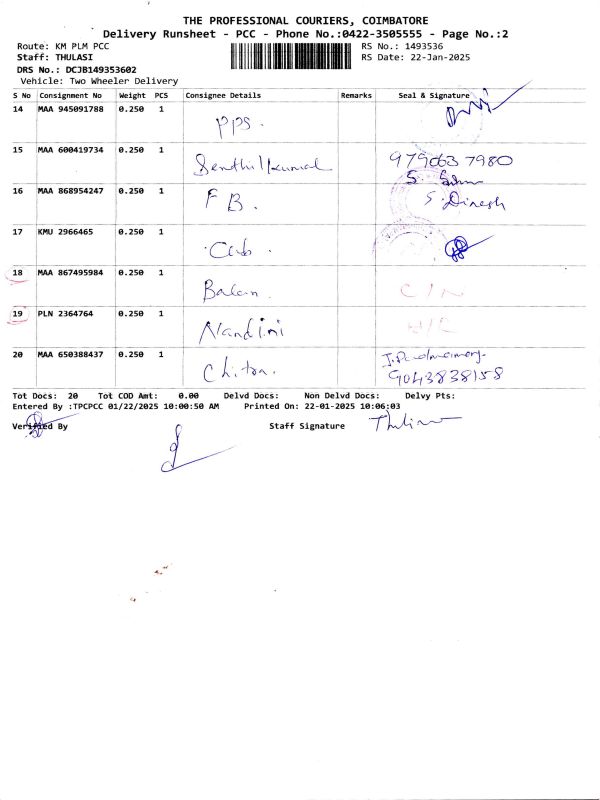 THE PROFESSIONAL COURIERS, COIMBATORE
Delivery Runsheet - PCC - Phone No.:0422-3505555 - Page No.:2
Route: KM PLM PCC
RS No.: 1493536
Staff: THULASI
RS Date: 22-Jan-2025
DRS No.: DCJB149353602
Vehicle: Two Wheeler Delivery
S No Consignment No Weight PCS Consignee Details Remarks Seal & Signature
14 MAA 945091788 0.250 1 PPS.
15 MAA 600419734 0.250 1 Senthilkumar 9790637980
16 MAA 868954247 0.250 1 FB. S. Dinesh
17 KMU 2966465 0.250 1
18 MAA 867495984 0.250 1 Balan. C/N
19 PLN 2364764 0.250 1 Nandini
20 MAA 650388437 0.250 1 9043838158
Tot Docs: 20 Tot COD Amt: 0.00 Delvd Docs: Non Delvd Docs: Delvy Pts:
Entered By :TPCPCC 01/22/2025 10:00:50 AM Printed On: 22-01-2025 10:06:03
Verified By Staff Signature